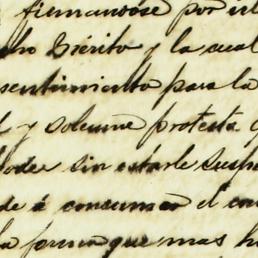 firmandose por
cho Escrito y la cual
sentimiento para la
y solemne protesta
poder sin estarle
de á consumar el
la forma que mas h